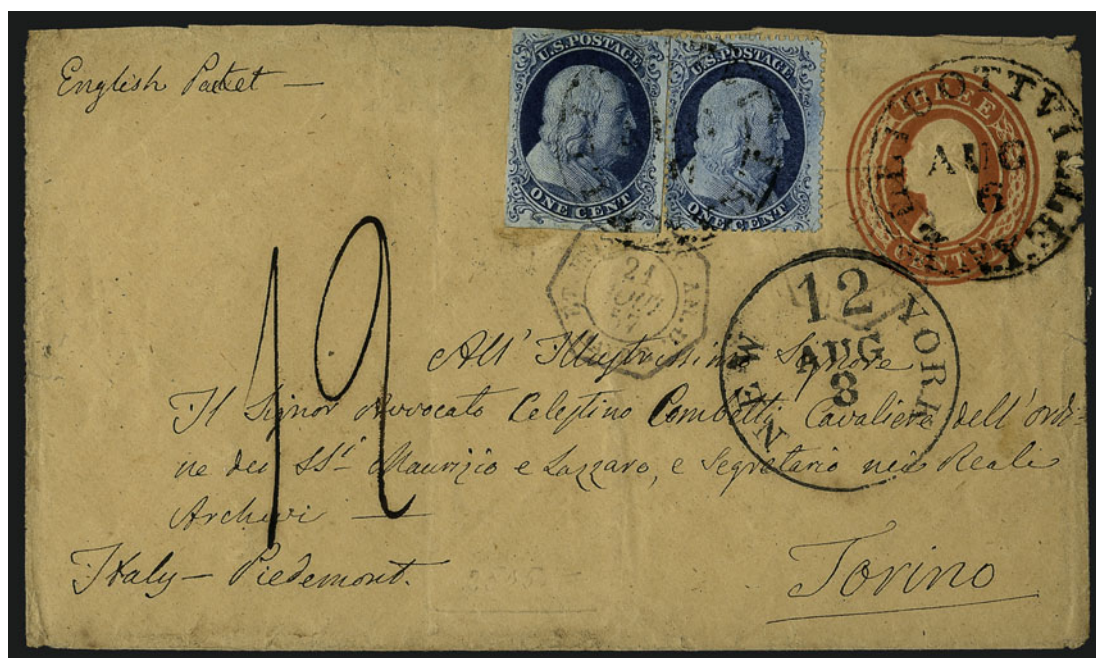 English Packet —
U.S. POSTAGE
ONE CENT
U.S. POSTAGE
ONE CENT
THREE
CENTS
ELLICOTTVILLE N.Y.
AUG
6
21
AOUT
57
NEW YORK
12
AUG
8
12
All' Illustrissimo Signore
Il Signor Avvocato Celestino Combetti Cavaliere dell' ordi=
ne dei SSi Maurizio e Lazzaro, e Segretario nei Reali
Archivi —
Italy — Piedemont.
Torino